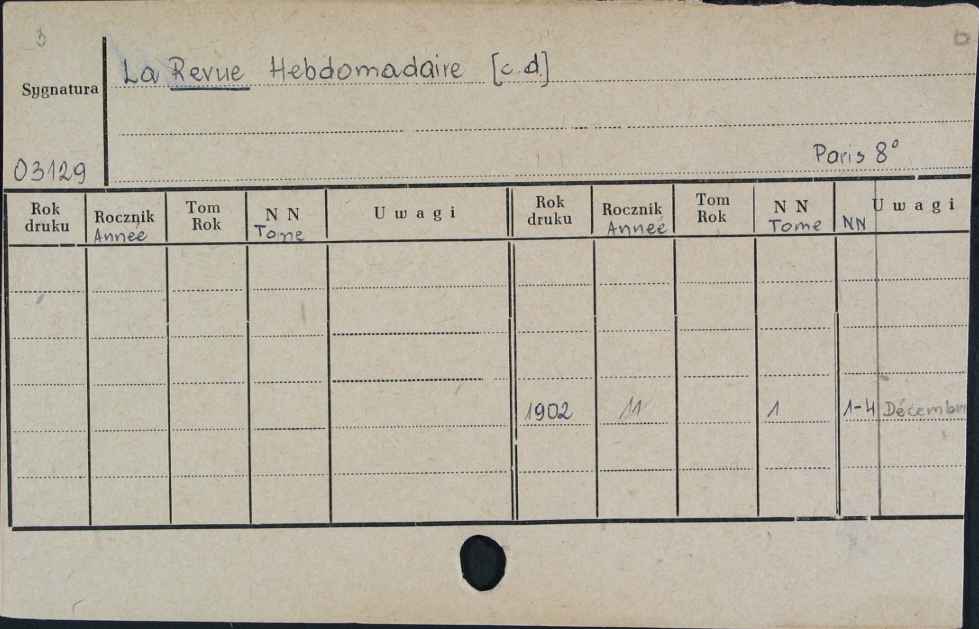 3
La Revue Hebdomadaire [c.d.]
Sygnatura
Paris 8°
03129
Rok druku Rocznik Année Tom Rok N N Tome U w a g i Rok druku Rocznik Année Tom Rok N N Tome NN U w a g i
1902 11 1 1-4 Décembre